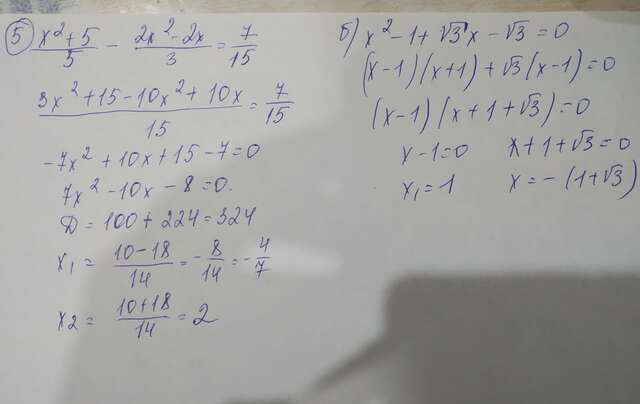 ⑤ (x² + 5)/5 - (2x² - 2x)/3 = 7/15
(3x² + 15 - 10x² + 10x)/15 = 7/15
-7x² + 10x + 15 - 7 = 0
7x² - 10x - 8 = 0.
D = 100 + 224 = 324
x₁ = (10 - 18)/14 = -8/14 = -4/7
x₂ = (10 + 18)/14 = 2
б) x² - 1 + √3 x - √3 = 0
(x - 1)(x + 1) + √3 (x - 1) = 0
(x - 1)(x + 1 + √3) = 0
x - 1 = 0 x + 1 + √3 = 0
x₁ = 1 x = -(1 + √3)